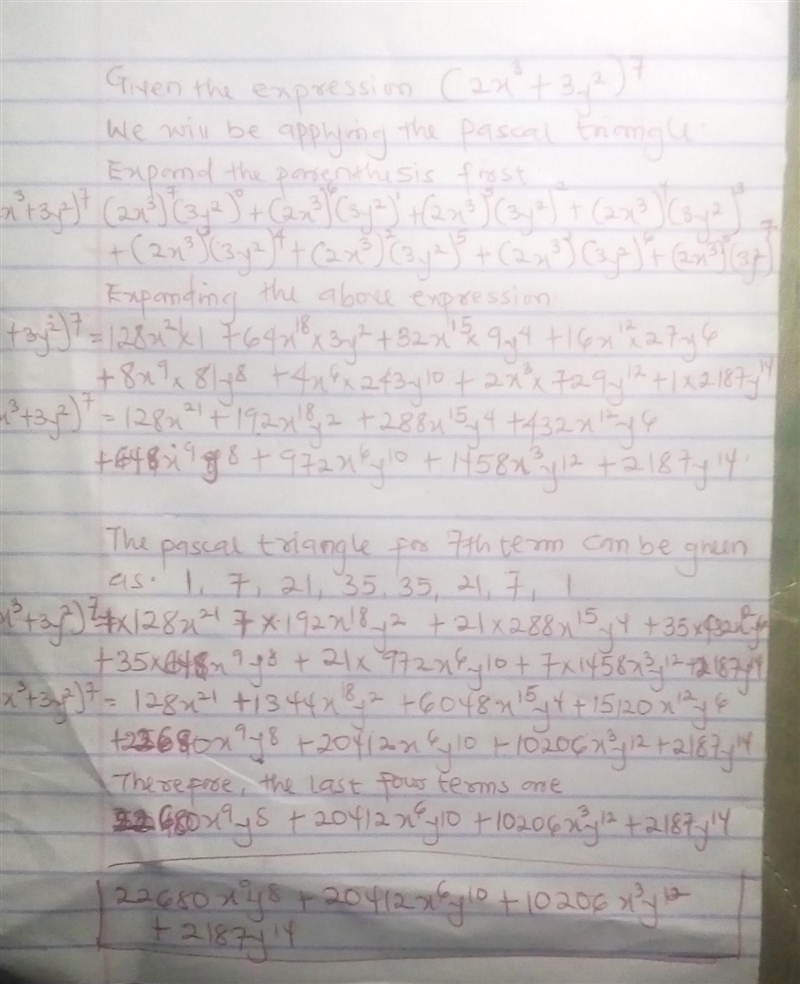 Given the expression (2x³ + 3y²)⁷
We will be applying the pascal triangle.
Expand the parenthesis first.
x³+3y²)⁷ (2x³)⁷(3y²)⁰ + (2x³)⁶(3y²)¹ + (2x³)⁵(3y²)² + (2x³)⁴(3y²)³
+ (2x³)³(3y²)⁴ + (2x³)²(3y²)⁵ + (2x³)(3y²)⁶ + (2x³)⁰(3y²)⁷
Expanding the above expression
+3y²)⁷ = 128x²¹x1 + 64x¹⁸ x 3y² + 32x¹⁵ x 9y⁴ + 16x¹² x 27y⁶
+ 8x⁹ x 81y⁸ + 4x⁶ x 243y¹⁰ + 2x³ x 729y¹² + 1 x 2187y¹⁴
x³+3y²)⁷ = 128x²¹ + 192x¹⁸y² + 288x¹⁵y⁴ + 432x¹²y⁶
+ 648x⁹y⁸ + 972x⁶y¹⁰ + 1458x³y¹² + 2187y¹⁴.
The pascal triangle for 7th term can be given
as. 1, 7, 21, 35, 35, 21, 7, 1
x³+3y²)⁷ = 1x128x²¹ 7 x 192x¹⁸y² + 21 x 288x¹⁵y⁴ + 35x432x¹²y⁶
+ 35x648x⁹y⁸ + 21 x 972x⁶y¹⁰ + 7 x 1458x³y¹² + 2187y¹⁴
x³+3y²)⁷ = 128x²¹ + 1344x¹⁸y² + 6048x¹⁵y⁴ + 15120x¹²y⁶
+ 22680x⁹y⁸ + 20412x⁶y¹⁰ + 10206x³y¹² + 2187y¹⁴
Therefore, the last four terms are
22680x⁹y⁸ + 20412x⁶y¹⁰ + 10206x³y¹² + 2187y¹⁴
22680x⁹y⁸ + 20412x⁶y¹⁰ + 10206x³y¹²
+ 2187y¹⁴